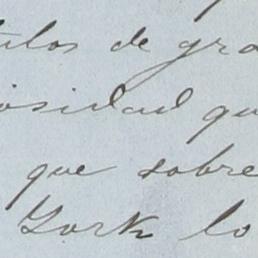 tulos de gra
iosidad qu
que sobre
York lo